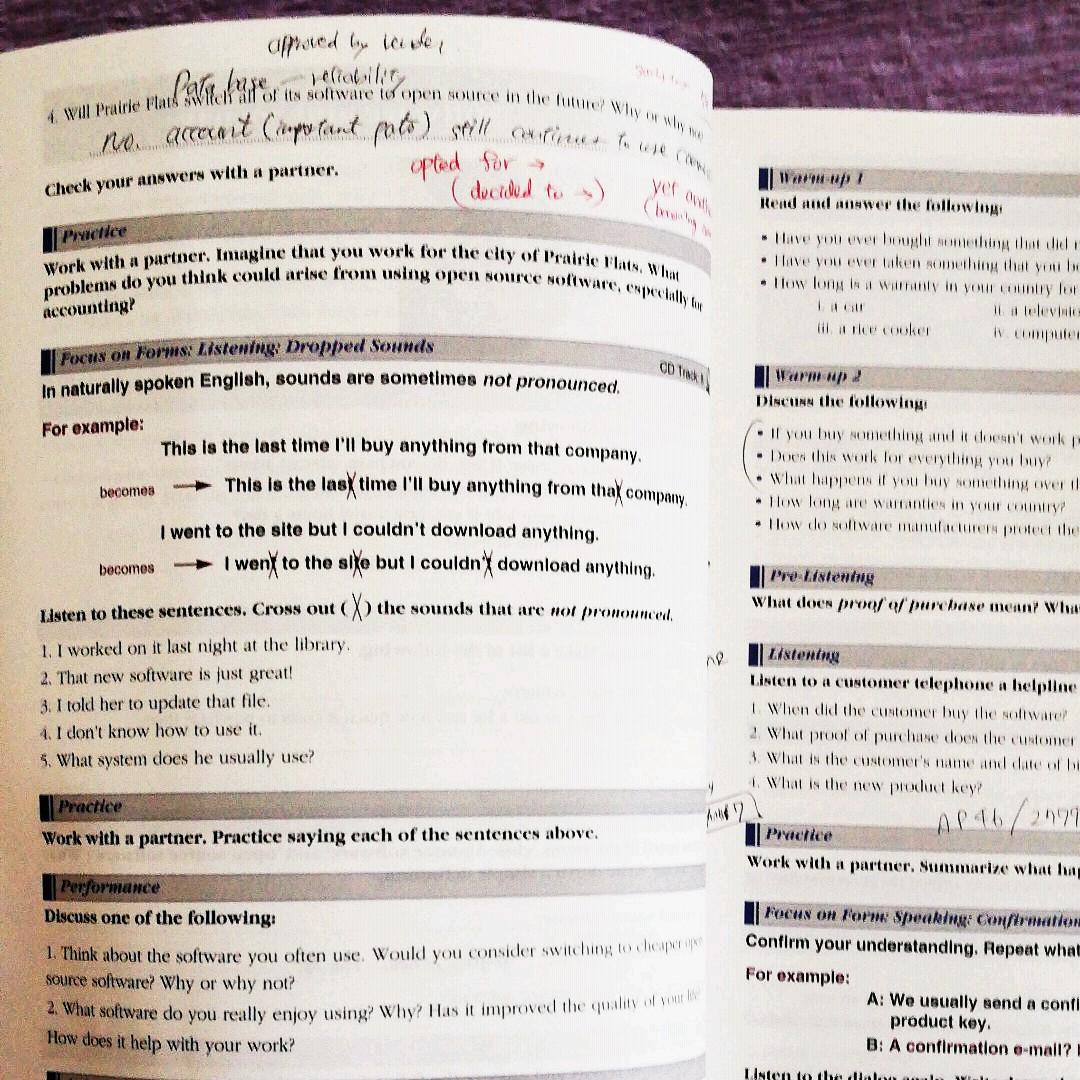 approved by
Data base – reliability
4. Will Prairie Flats switch all of its software to open source in the future? Why or why not
no. account (important pats) still continues to use
Check your answers with a partner.
opted for →
(decided to →)
Practice
Work with a partner. Imagine that you work for the city of Prairie Flats. What
problems do you think could arise from using open source software, especially for
accounting?
Focus on Forms: Listening: Dropped Sounds
CD Track
In naturally spoken English, sounds are sometimes not pronounced.
For example:
This is the last time I'll buy anything from that company.
becomes → This is the last time I'll buy anything from that company.
I went to the site but I couldn't download anything.
becomes → I went to the site but I couldn't download anything.
Listen to these sentences. Cross out (X) the sounds that are not pronounced.
1. I worked on it last night at the library.
2. That new software is just great!
3. I told her to update that file.
4. I don't know how to use it.
5. What system does he usually use?
Practice
Work with a partner. Practice saying each of the sentences above.
Performance
Discuss one of the following:
1. Think about the software you often use. Would you consider switching to cheaper open
source software? Why or why not?
2. What software do you really enjoy using? Why? Has it improved the quality of your life?
How does it help with your work?
Warm-up 1
Read and answer the following:
• Have you ever bought something that did
• Have you ever taken something that you
• How long is a warranty in your country for
i. a car ii. a televisio
iii. a rice cooker iv. computer
Warm-up 2
Discuss the following:
• If you buy something and it doesn't work
• Does this work for everything you buy?
• What happens if you buy something over th
• How long are warranties in your country?
• How do software manufacturers protect the
Pre-Listening
What does proof of purchase mean? Wha
Listening
Listen to a customer telephone a helpline
1. When did the customer buy the software?
2. What proof of purchase does the customer
3. What is the customer's name and date of bi
4. What is the new product key?
Practice
Work with a partner. Summarize what hap
Focus on Form: Speaking: Confirmation
Confirm your understanding. Repeat what
For example:
A: We usually send a confi
product key.
B: A confirmation e-mail?
Listen to the dialog again.